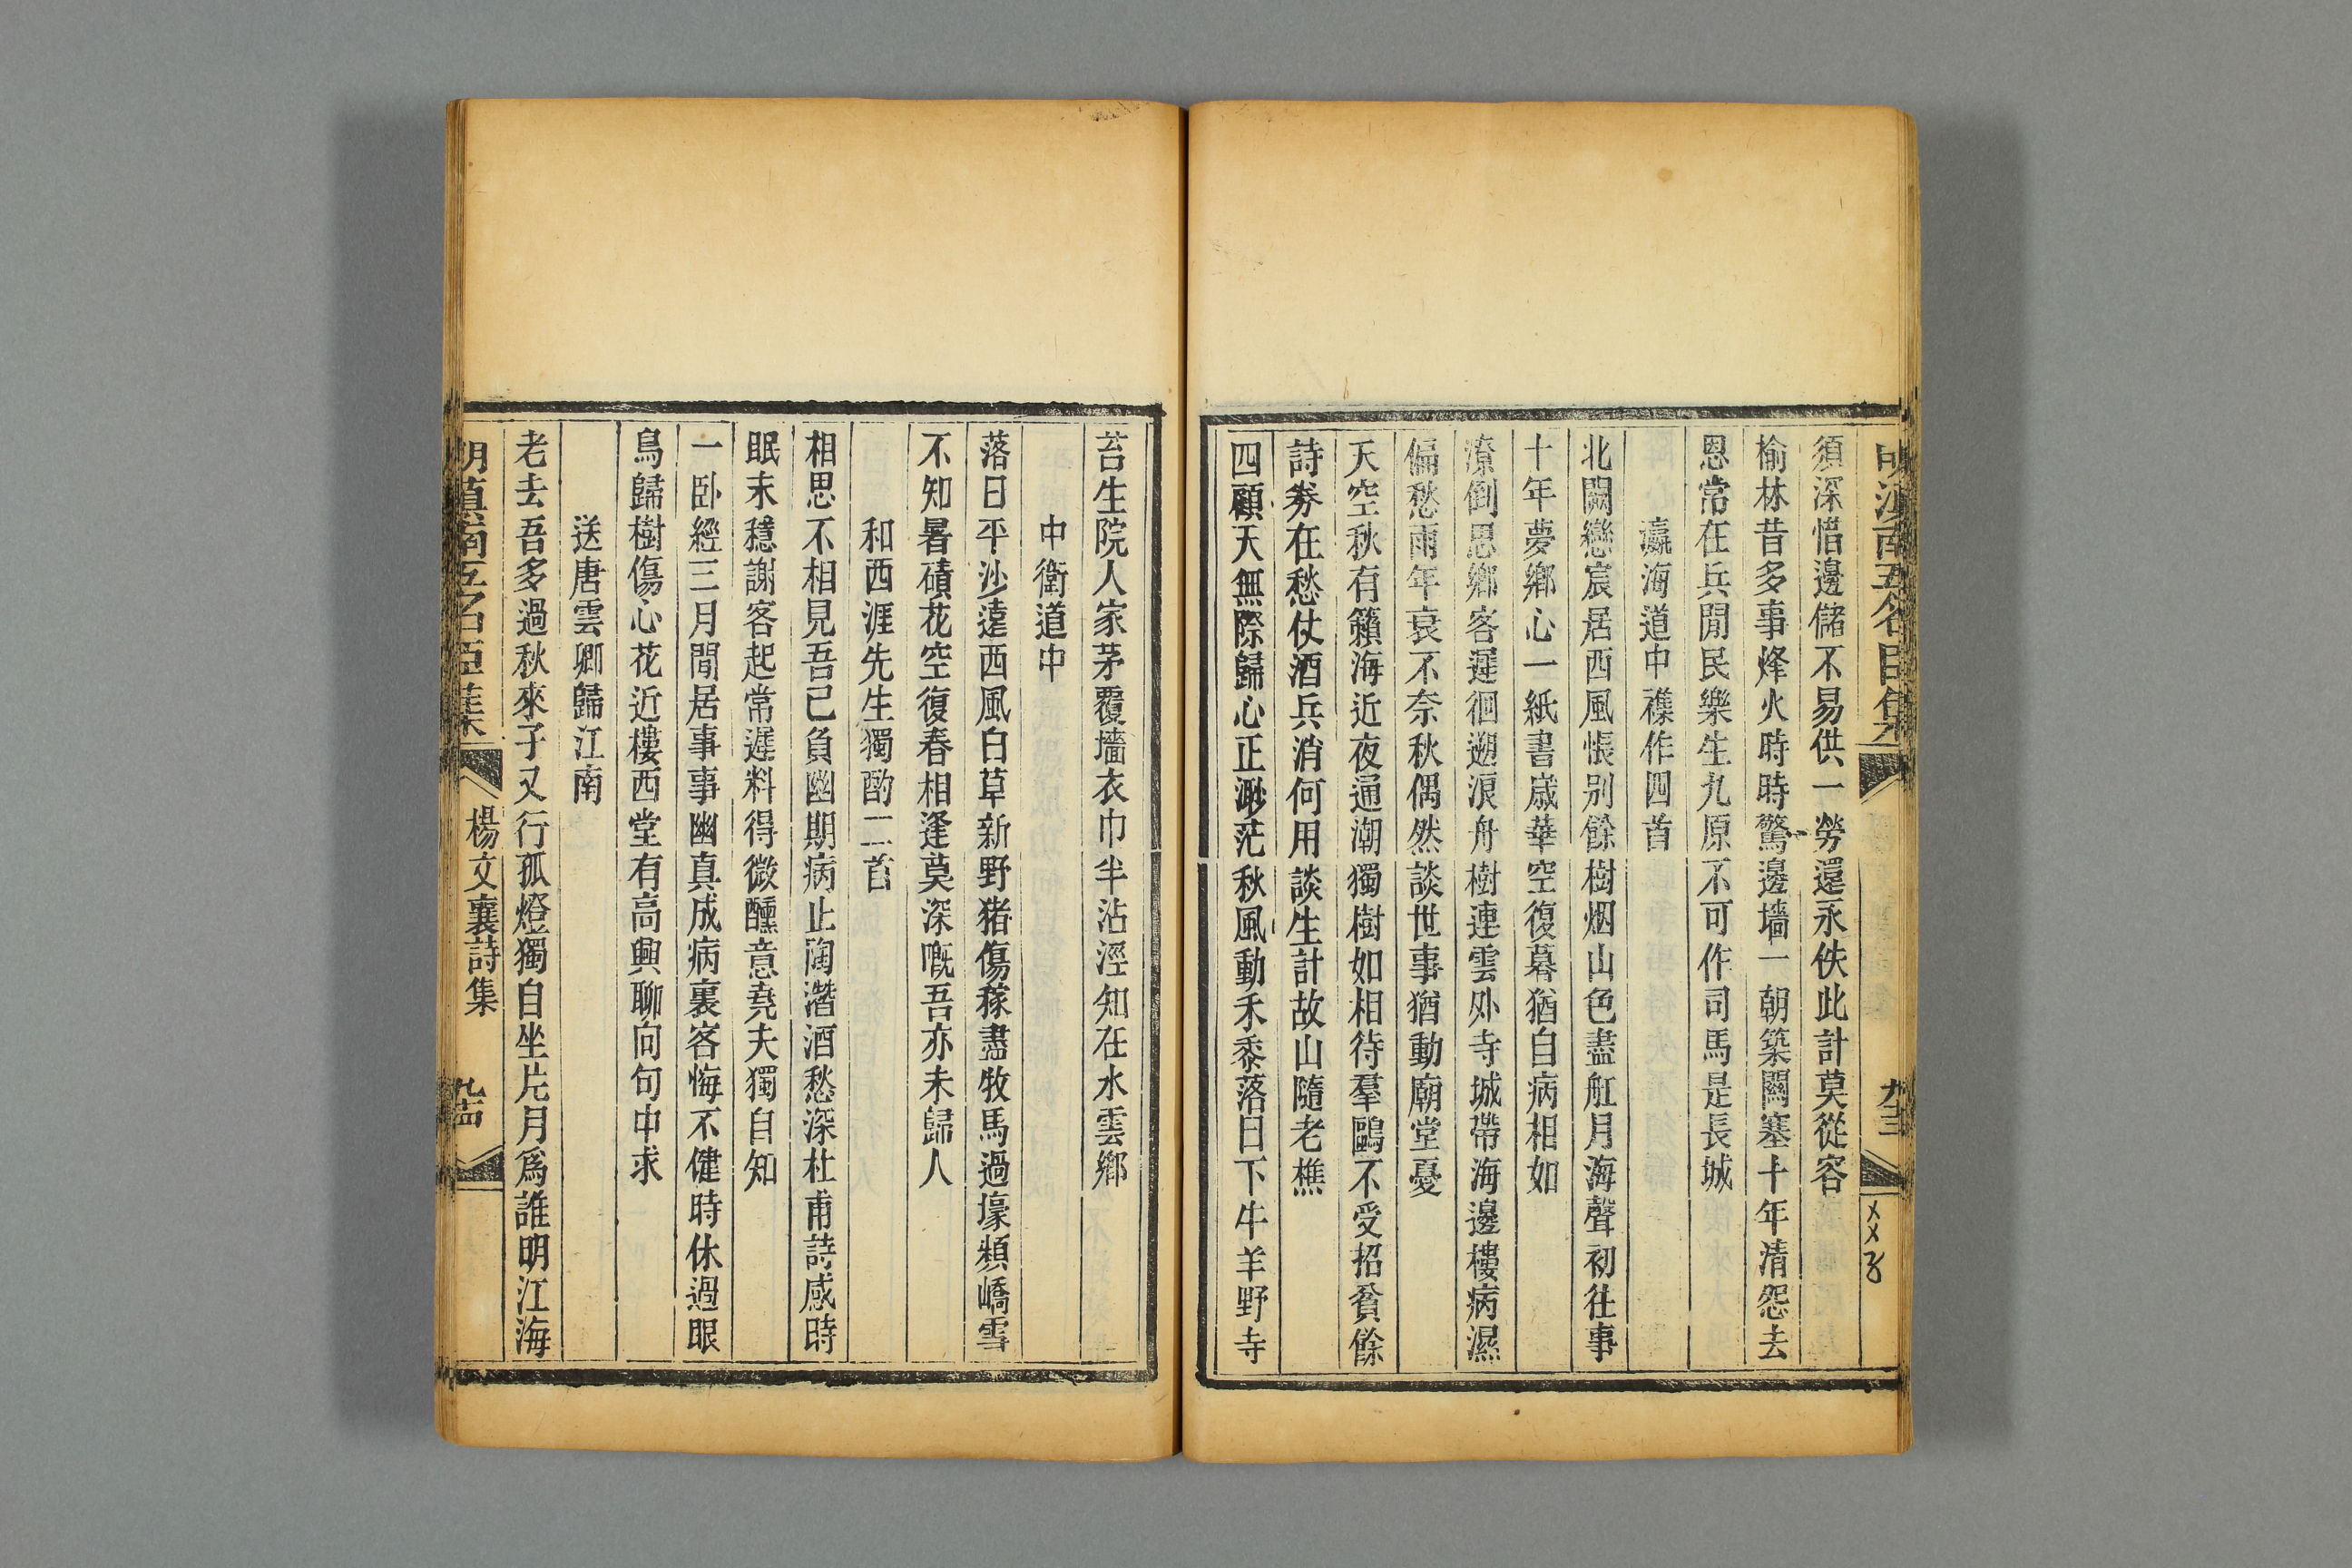 明滇南五名臣集
須深惜邊儲不易供一勞還永佚此計莫從容
榆林昔多事烽火時時驚邊墻一朝築關塞十年清怨去
恩常在兵閒民樂生九原不可作司馬是長城
瀛海道中襍作四首
北闕戀宸居西風悵别餘樹烟山色盡舡月海聲初往事
十年夢鄉心一紙書歲華空復暮猶自病相如
潦倒思鄉客遲徊遡浪舟樹連雲外寺城帶海邊樓病濕
偏愁雨年衰不奈秋偶然談世事猶動廟堂憂
天空秋有籟海近夜通潮獨樹如相待羣鷗不受招貧餘
詩券在愁仗酒兵消何用談生計故山隨老樵
四顧天無際歸心正渺茫秋風動禾黍落日下牛羊野寺
苔生院人家茅覆墻衣巾半沾溼知在水雲鄉
中衛道中
落日平沙遠西風白草新野猪傷稼盡牧馬過壕頻嶠雪
不知暑磧花空復春相逢莫深嘅吾亦未歸人
和西涯先生獨酌二首
相思不相見吾已負幽期病止陶潛酒愁深杜甫詩感時
眠未穩謝客起常遲料得微醺意堯夫獨自知
一卧經三月閒居事事幽真成病裏客悔不健時休過眼
鳥歸樹傷心花近樓西堂有高興聊向句中求
送唐雲卿歸江南
老去吾多過秋來子又行孤燈獨自坐片月爲誰明江海
明滇南五名臣集
楊文襄詩集